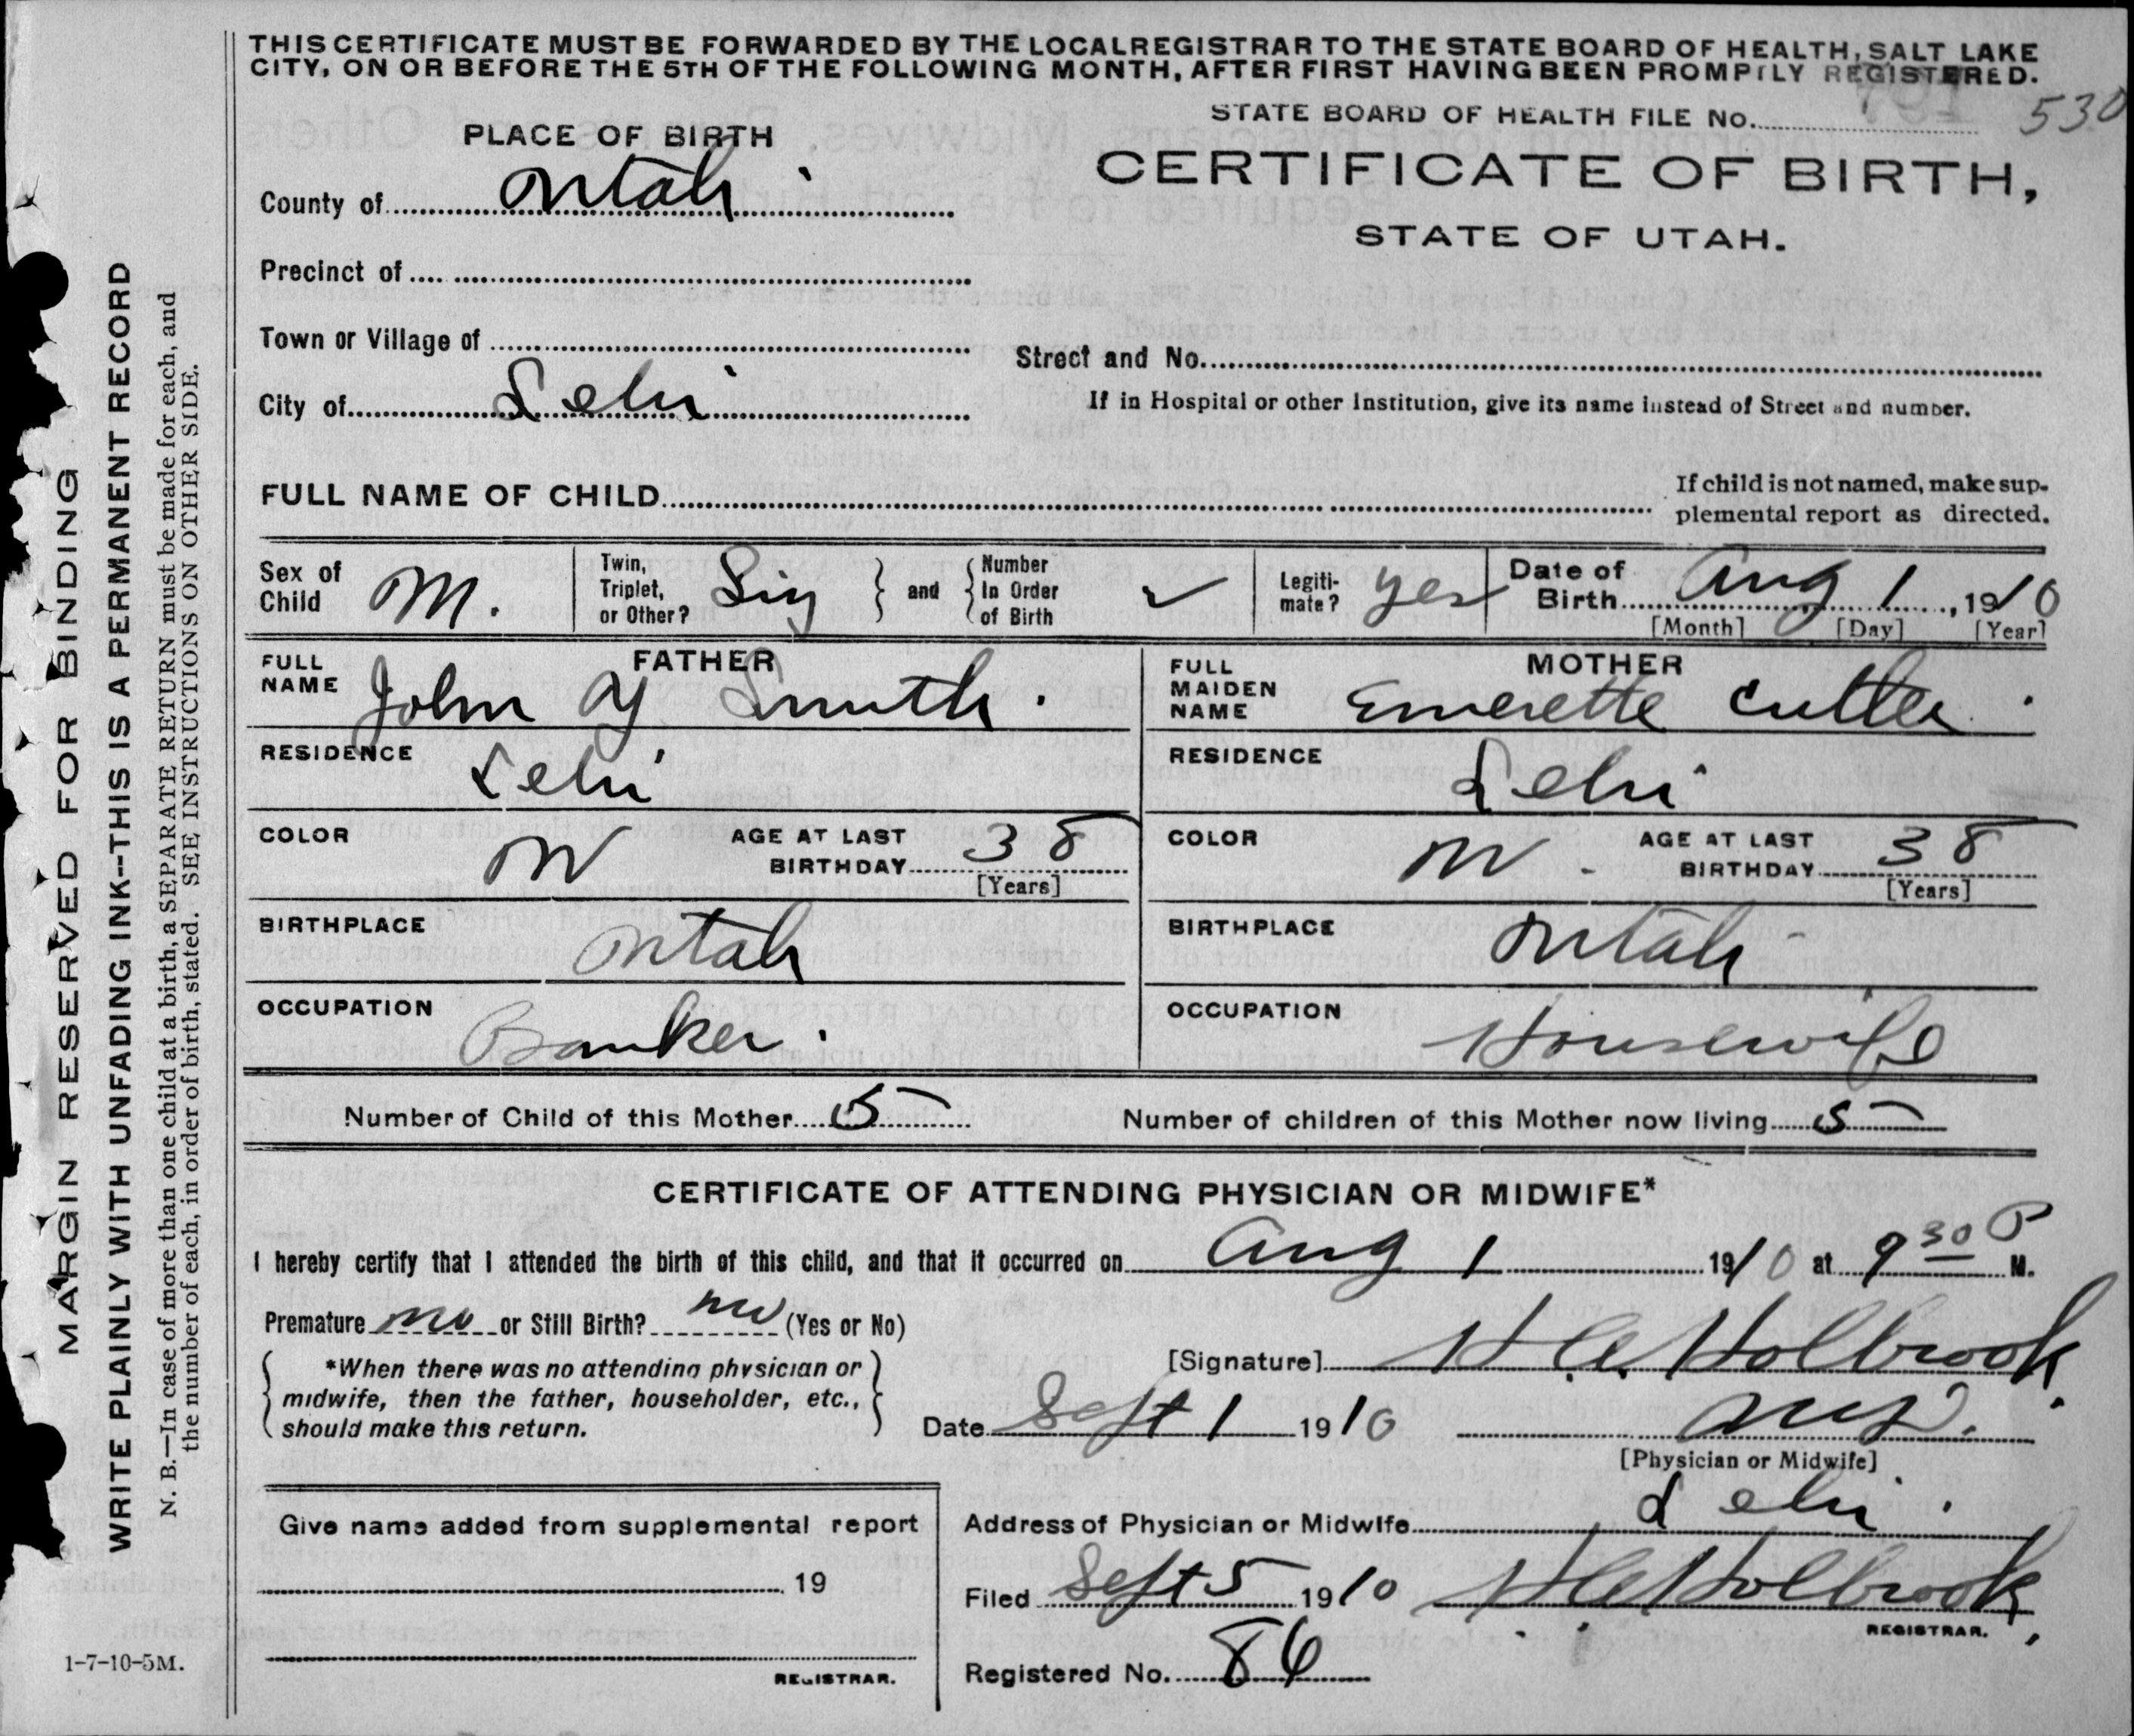 THIS CERTIFICATE MUST BE FORWARDED BY THE LOCAL REGISTRAR TO THE STATE BOARD OF HEALTH, SALT LAKE
CITY, ON OR BEFORE THE 5TH OF THE FOLLOWING MONTH, AFTER FIRST HAVING BEEN PROMPTLY REGISTERED.
STATE BOARD OF HEALTH FILE No. 530
PLACE OF BIRTH
CERTIFICATE OF BIRTH,
STATE OF UTAH.
County of Utah
Precinct of
Town or Village of
Street and No.
City of Lehi
If in Hospital or other Institution, give its name instead of Street and number.
FULL NAME OF CHILD
If child is not named, make sup-
plemental report as directed.
Sex of Child M.
Twin, Triplet, or Other? Sig
and
Number In Order of Birth ✓
Legiti-mate? yes
Date of Birth Aug 1, 1910
[Month] [Day] [Year]
FATHER
FULL NAME John Y Smith.
MOTHER
FULL MAIDEN NAME Emerette Cutler.
RESIDENCE Lehi
RESIDENCE Lehi
COLOR W AGE AT LAST BIRTHDAY 38 [Years]
COLOR W - AGE AT LAST BIRTHDAY 38 [Years]
BIRTHPLACE Utah
BIRTHPLACE Utah -
OCCUPATION Banker.
OCCUPATION Housewife
Number of Child of this Mother 5
Number of children of this Mother now living 5
CERTIFICATE OF ATTENDING PHYSICIAN OR MIDWIFE*
I hereby certify that I attended the birth of this child, and that it occurred on Aug 1 1910 at 9 30 P M.
Premature no or Still Birth? no (Yes or No)
*When there was no attending physician or
midwife, then the father, householder, etc.,
should make this return.
[Signature] H. C. Holbrook.
Date Sept 1 1910
M.D.
[Physician or Midwife]
Give name added from supplemental report
19
REGISTRAR.
Address of Physician or Midwife Lehi.
Filed Sept 5 1910 H C Holbrook,
REGISTRAR.
Registered No. 86
MARGIN RESERVED FOR BINDING
WRITE PLAINLY WITH UNFADING INK--THIS IS A PERMANENT RECORD
N. B.—In case of more than one child at a birth, a SEPARATE RETURN must be made for each, and
the number of each, in order of birth, stated. SEE INSTRUCTIONS ON OTHER SIDE.
1-7-10-5M.